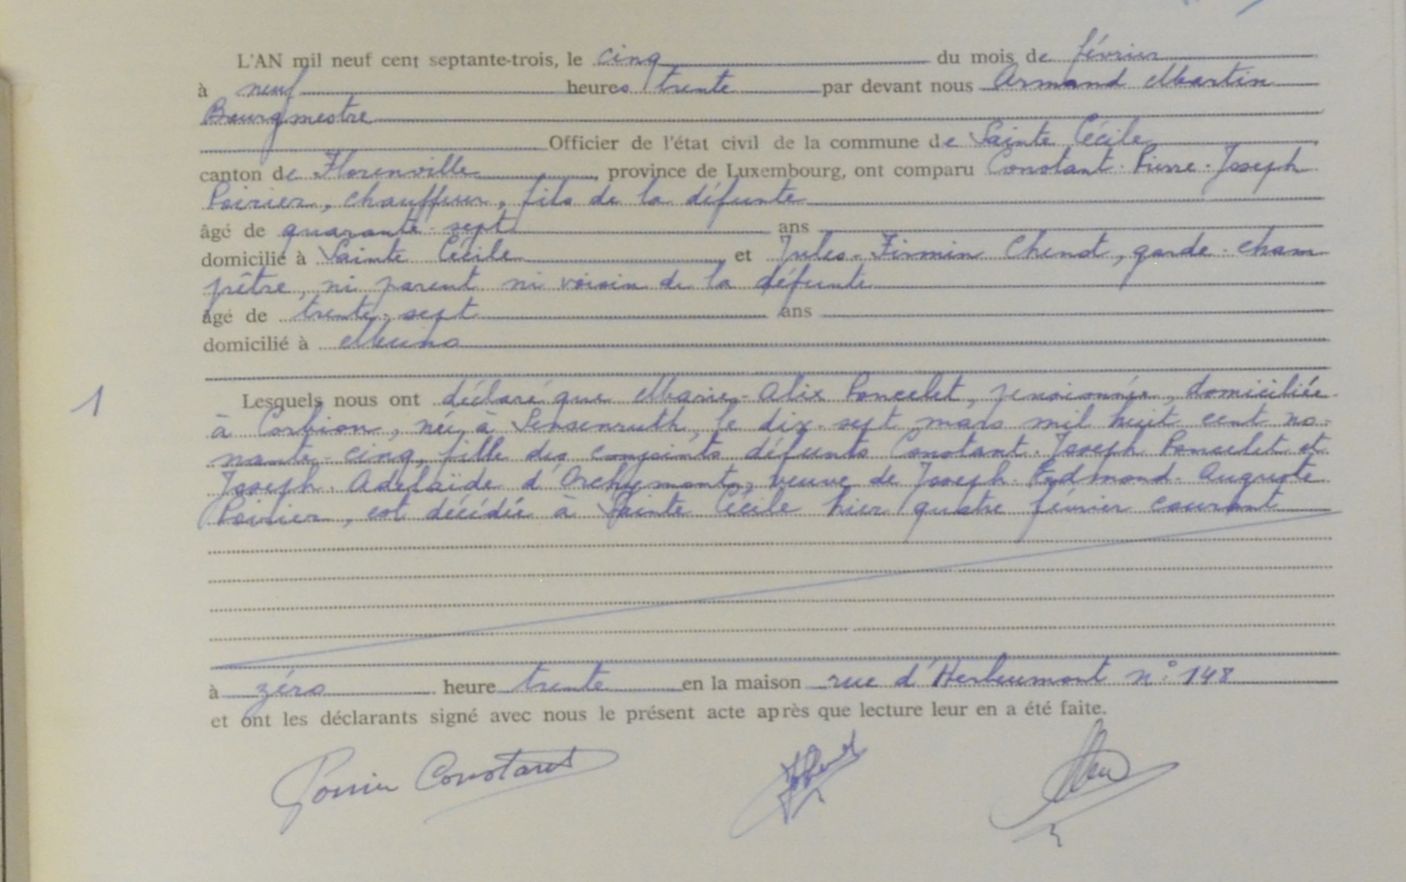 L'AN mil neuf cent septante-trois, le cinq du mois de février
à neuf heures trente par devant nous Armand Martin
Bourgmestre
Officier de l'état civil de la commune de Sainte Cécile
canton de Florenville, province de Luxembourg, ont comparu Constant-Pierre-Joseph
Poirier, chauffeur, fils de la défunte
âgé de quarante-sept ans
domicilié à Sainte Cécile et Jules-Firmin Chenot, garde-cham
pêtre, ni parent ni voisin de la défunte
âgé de trente-sept ans
domicilié à Muno
1
Lesquels nous ont déclaré que Marie-Alix Poncelet, pensionnée, domiciliée
à Corbion, née à Sensenruth, le dix-sept mars mil huit cent no-
nante-cinq, fille des conjoints défunts Constant-Joseph Poncelet et
Joseph-Adelaïde d'Orchymont, veuve de Joseph-Edmond-Auguste
Poirier, est décédée à Sainte Cécile hier quatre février courant
à zéro heure trente en la maison rue d'Herbeumont n° 148
et ont les déclarants signé avec nous le présent acte après que lecture leur en a été faite.
Poirier Constant